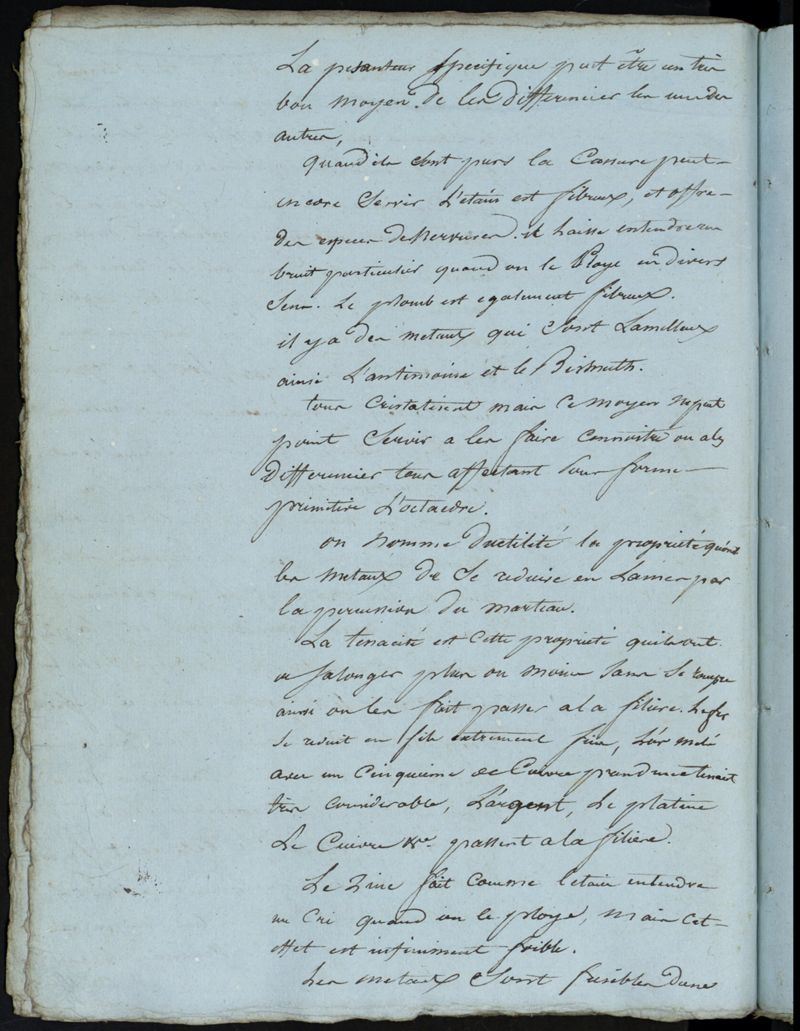 La pesanteur specifique peut être un tres
bon moyen de les differencier les uns des
autres,
quand ils sont purs la Cassure peut
encore Servir L'etain est fibreux, et offre
des especes de Nervures. il Laisse entendre un
bruit particulier quand on le Ploye en divers
Sens. Le plomb est egalement fibreux.
il y a des metaux qui Sont Lamelleux
ainsi L'antimoine et le Bismuth.
tous cristalisent mais ce moyen ne peut
point Servir a les faire connoitre ou a les
differencier tous affectant pour forme
primitive L'octaedre.
on nomme ductilité la propriété qu'ont
les metaux de Se reduire en Lames par
la percussion du marteau.
La tenacité est cette propriete quils ont
a Salonger plus ou moins Sans Se rompre
ainsi on les fait passer a la filiere. Le fer
Se reduit en fils extrement fins, L'or melé
avec un Cinquieme de Cuivre prend une tenacité
tres considerable, L'argent, Le platine
Le Cuivre &c. passent a la filiere.
Le Zinc fait comme letain entendre
un Cri quand on le ploye, mais cet
effet est infiniment foible.
Les metaux Sont fusibles dans